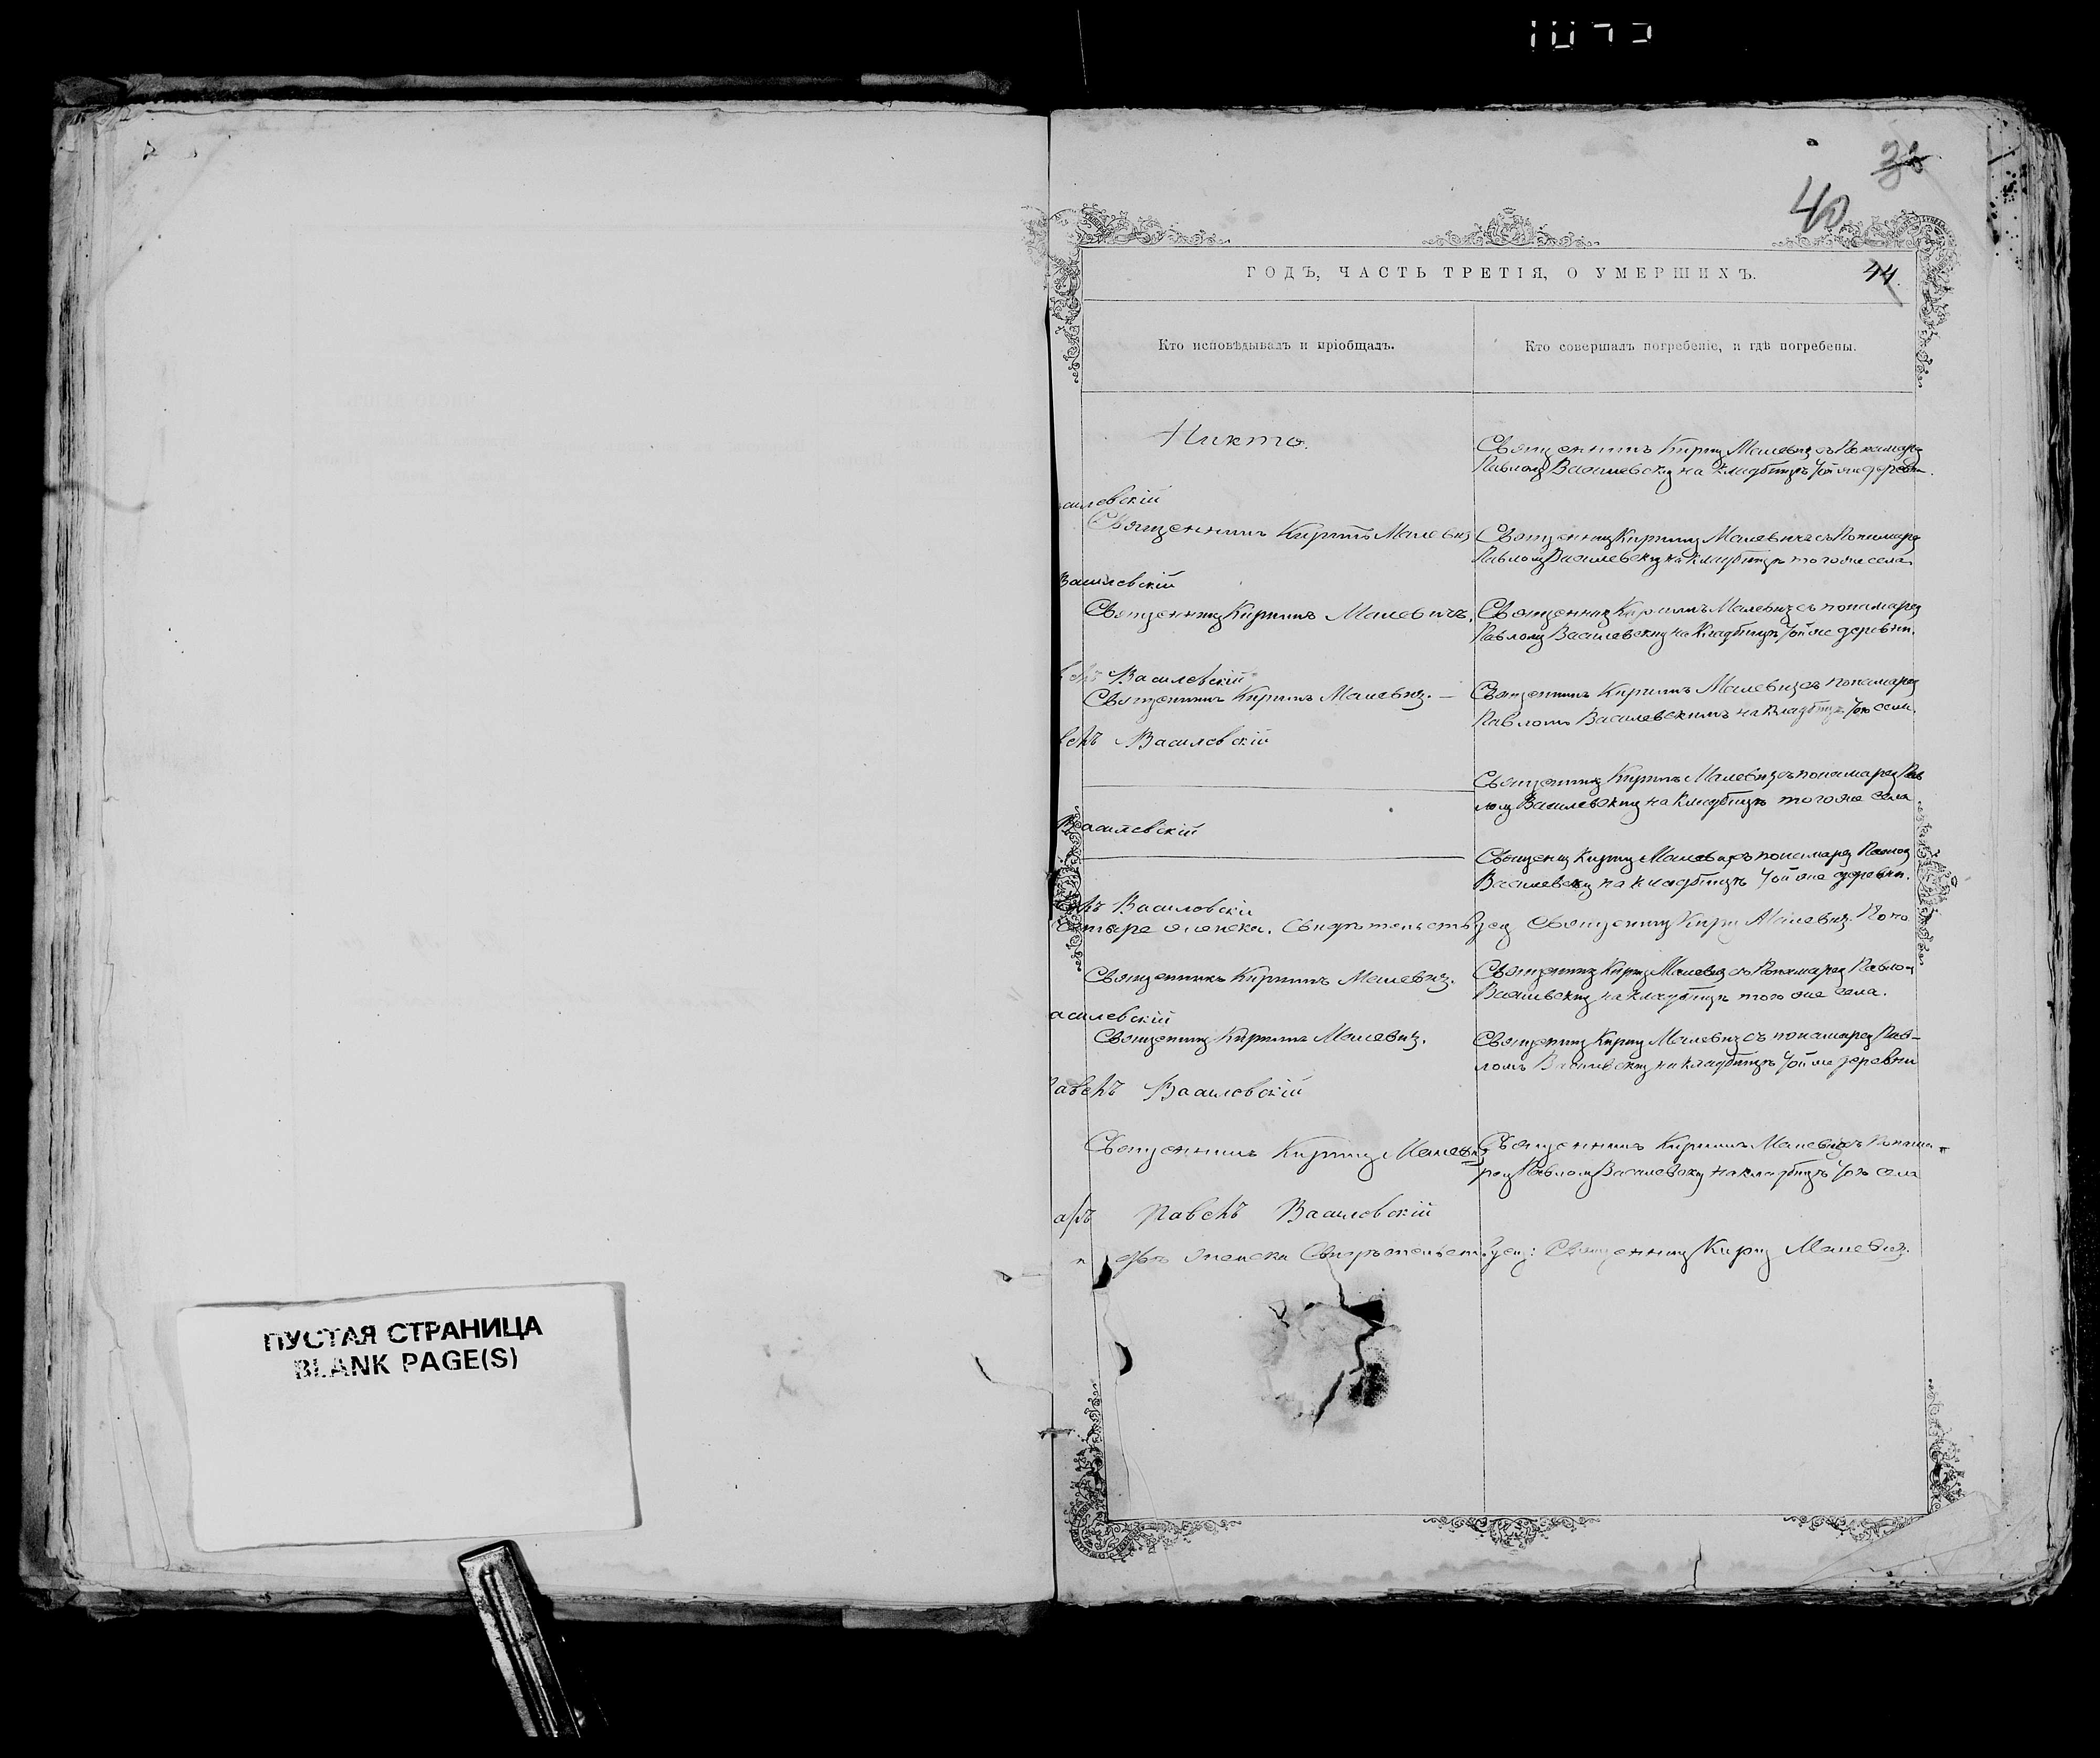 1073
38
40
ГОДЪ, ЧАСТЬ ТРЕТІЯ, О УМЕРШИХЪ.
44.
Кто исповѣдывалъ и пріобщалъ.
Кто совершалъ погребеніе, и гдѣ погребены.
Никто.
Священникъ Кирилъ Малевичъ съ Пономаремъ
Павломъ Василевскимъ на кладбищѣ той же деревни.
асилевскій
Священникъ Кирилъ Малевичъ
Священникъ Кирилъ Малевичъ съ Пономаремъ
Павломъ Василевскимъ на кладбищѣ того же села.
Василевскій
Священникъ Кирилъ Малевичъ.
Священникъ Кирилъ Малевичъ съ пономаремъ
Павломъ Василевскимъ на кладбищѣ той же деревни.
велъ Василевскій
Священникъ Кирилъ Малевичъ. —
Священникъ Кирилъ Малевичъ съ пономаремъ
Павломъ Василевскимъ на кладбищѣ того села.
велъ Василевскій
Священникъ Кирилъ Малевичъ съ пономаремъ Пав
ломъ Василевскимъ на кладбищѣ того же села
Василевскій
Священникъ Кирилъ Малевичъ съ пономаремъ Павломъ
Василевскимъ на кладбищѣ той же деревни.
елъ Василевскій
женска. Свидѣтельствуетъ Священникъ Кирилъ Малевичъ. Поно
Священникъ Кирилъ Малевичъ.
Священникъ Кирилъ Малевичъ съ Пономаремъ Павломъ
Василевскимъ на кладбищѣ того же села.
асилевскій
Священникъ Кирилъ Малевичъ.
Священникъ Кирилъ Малевичъ съ пономаремъ Пав-
ломъ Василевскимъ на кладбищѣ той же деревни
авелъ Василевскій
Священникъ Кирилъ Малевичъ
Священникъ Кирилъ Малевичъ съ Понома-
ремъ Павломъ Василевскимъ на кладбищѣ того села
арь Павелъ Василевскій
женска Свидѣтельствуетъ: Священникъ Кирилъ Малевичъ.
ПУСТАЯ СТРАНИЦА
BLANK PAGE(S)